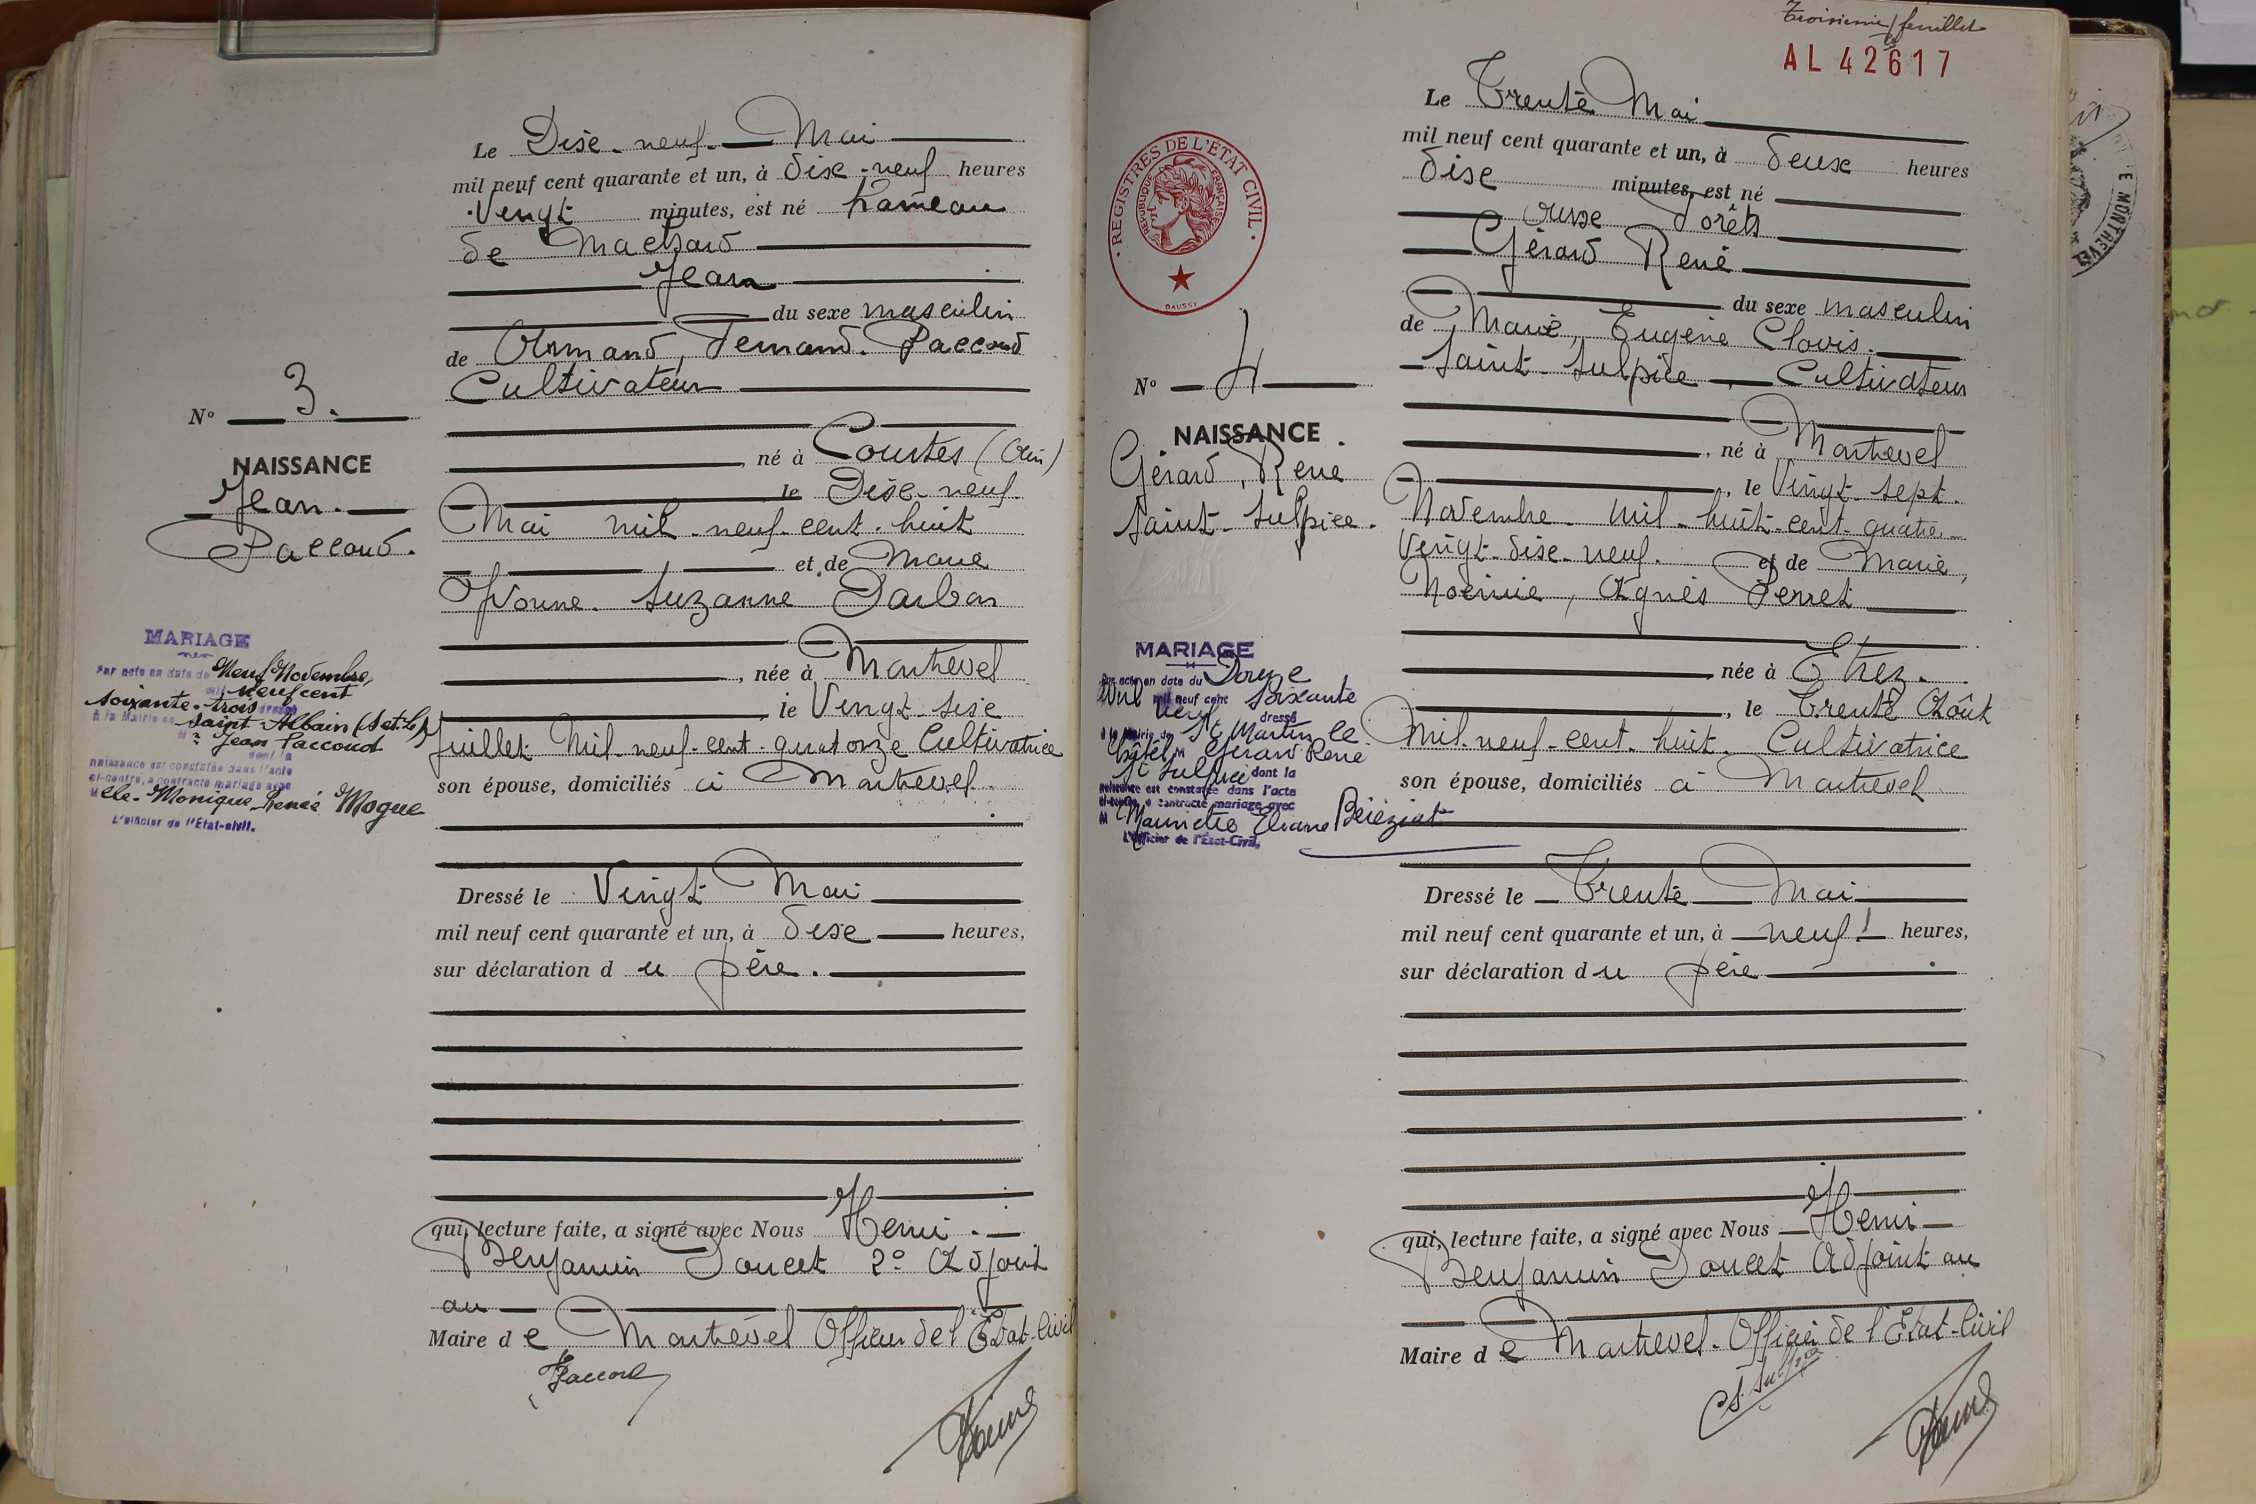 Le Dix-neuf Mai
mil neuf cent quarante et un, à dix-neuf heures
Vingt minutes, est né hameau
de Machard
Jean
du sexe masculin
de Armand, Fernand Paccoud
Cultivateur
né à Courtes (Ain)
le Dix-neuf
Mai mil neuf cent huit
et de Marie
Yvonne Suzanne Darbon
née à Montrevel
le Vingt-six
Juillet Mil-neuf-cent-quatorze Cultivatrice
son épouse, domiciliés à Montrevel
Dressé le Vingt Mai
mil neuf cent quarante et un, à dix heures,
sur déclaration du père.
qui, lecture faite, a signé avec Nous Henri
Benjamin Doucet 2º Adjoint
au
Maire de Montrevel Officier de l'Etat-Civil
Paccoud
Nº 3.
NAISSANCE
Jean
Paccoud.
MARIAGE
Par acte en date du Neuf Novembre,
mil neuf cent
soixante-trois dressé
à la Mairie de Saint-Albain (S.et.L)
M r Jean Paccoud
dont la
naissance est constatée dans l'acte
ci-contre, a contracté mariage avec
Melle Monique Renée Mogue
L'officier de l'État-civil.
Troisième feuillet
AL 42617
Le Trente Mai
mil neuf cent quarante et un, à deux heures
dix minutes, est né
aux Forêts
Gérard René
du sexe masculin
de Marie, Eugène Clovis
Saint-Sulpice, Cultivateur
né à Montrevel
, le Vingt-sept
Novembre Mil-huit-cent-quatre-
Vingt-dix-neuf. et de Marie,
Noémie, Agnès Perret
née à Etrez.
, le Trente Août
Mil-neuf-cent-huit. Cultivatrice
son épouse, domiciliés à Montrevel
Dressé le Trente Mai
mil neuf cent quarante et un, à neuf heures,
sur déclaration du père
qui, lecture faite, a signé avec Nous Henri
Benjamin Doucet Adjoint au
Maire de Montrevel-Officier de l'Etat-Civil
REGISTRES DE L'ÉTAT CIVIL
RÉPUBLIQUE FRANÇAISE
DAUSSY
Nº 4
NAISSANCE
Gérard, René
Saint-Sulpice.
MARIAGE
Par acte en date du Douze
avril mil neuf cent soixante
neuf dressé
à la Mairie de St Martin le
Châtel M Gérard René
St Sulpice dont la
naissance est constatée dans l'acte
ci-contre, a contracté mariage avec
M Mauricette Eliane Béréziat
L'Officier de l'État-Civil,
MONTREVEL